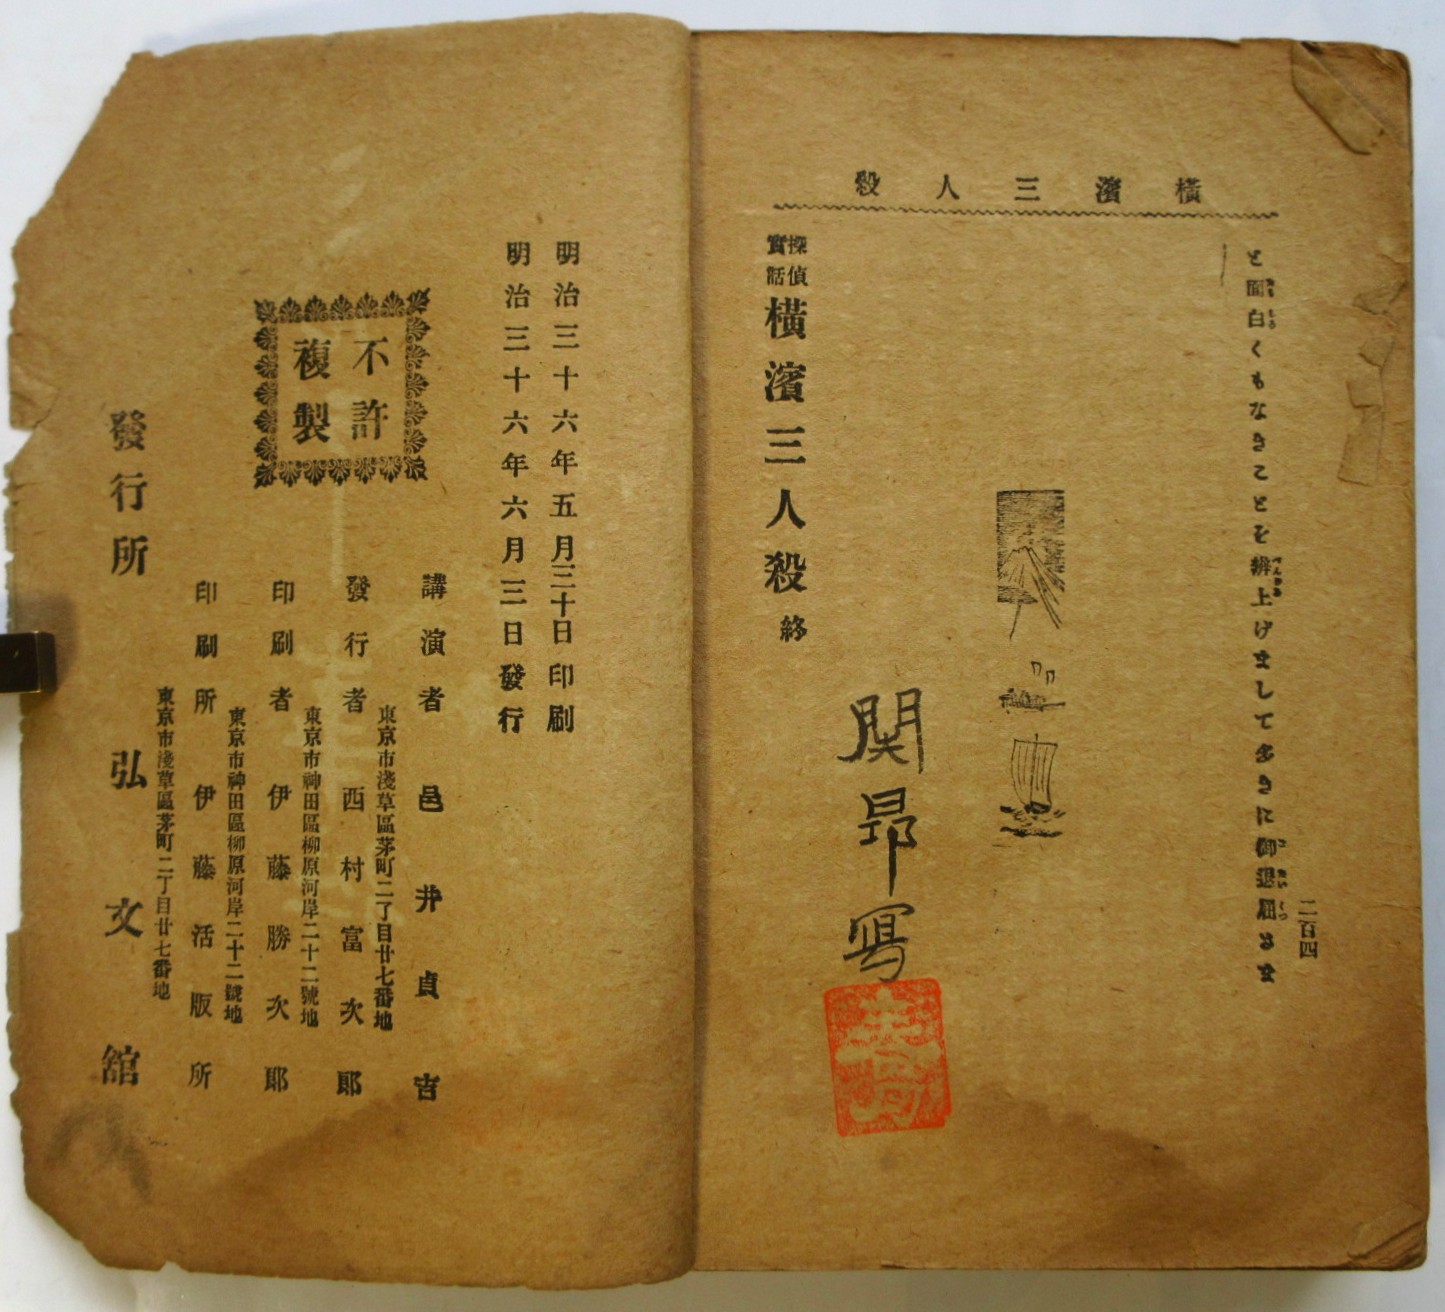 横濱三人殺
二百四
と面白くもなきことを辯上げまして多きに御退屈さま
探偵實話 横濱三人殺 終
関昻寫
明治三十六年五月三十日印刷
明治三十六年六月三日發行
不許
複製
講演者 邑井貞吉
東京市淺草區茅町二丁目廿七番地
發行者 西村富次郎
東京市神田區柳原河岸二十二號地
印刷者 伊藤勝次郎
東京市神田區柳原河岸二十二號地
印刷所 伊藤活版所
東京市淺草區茅町二丁目廿七番地
發行所 弘文舘